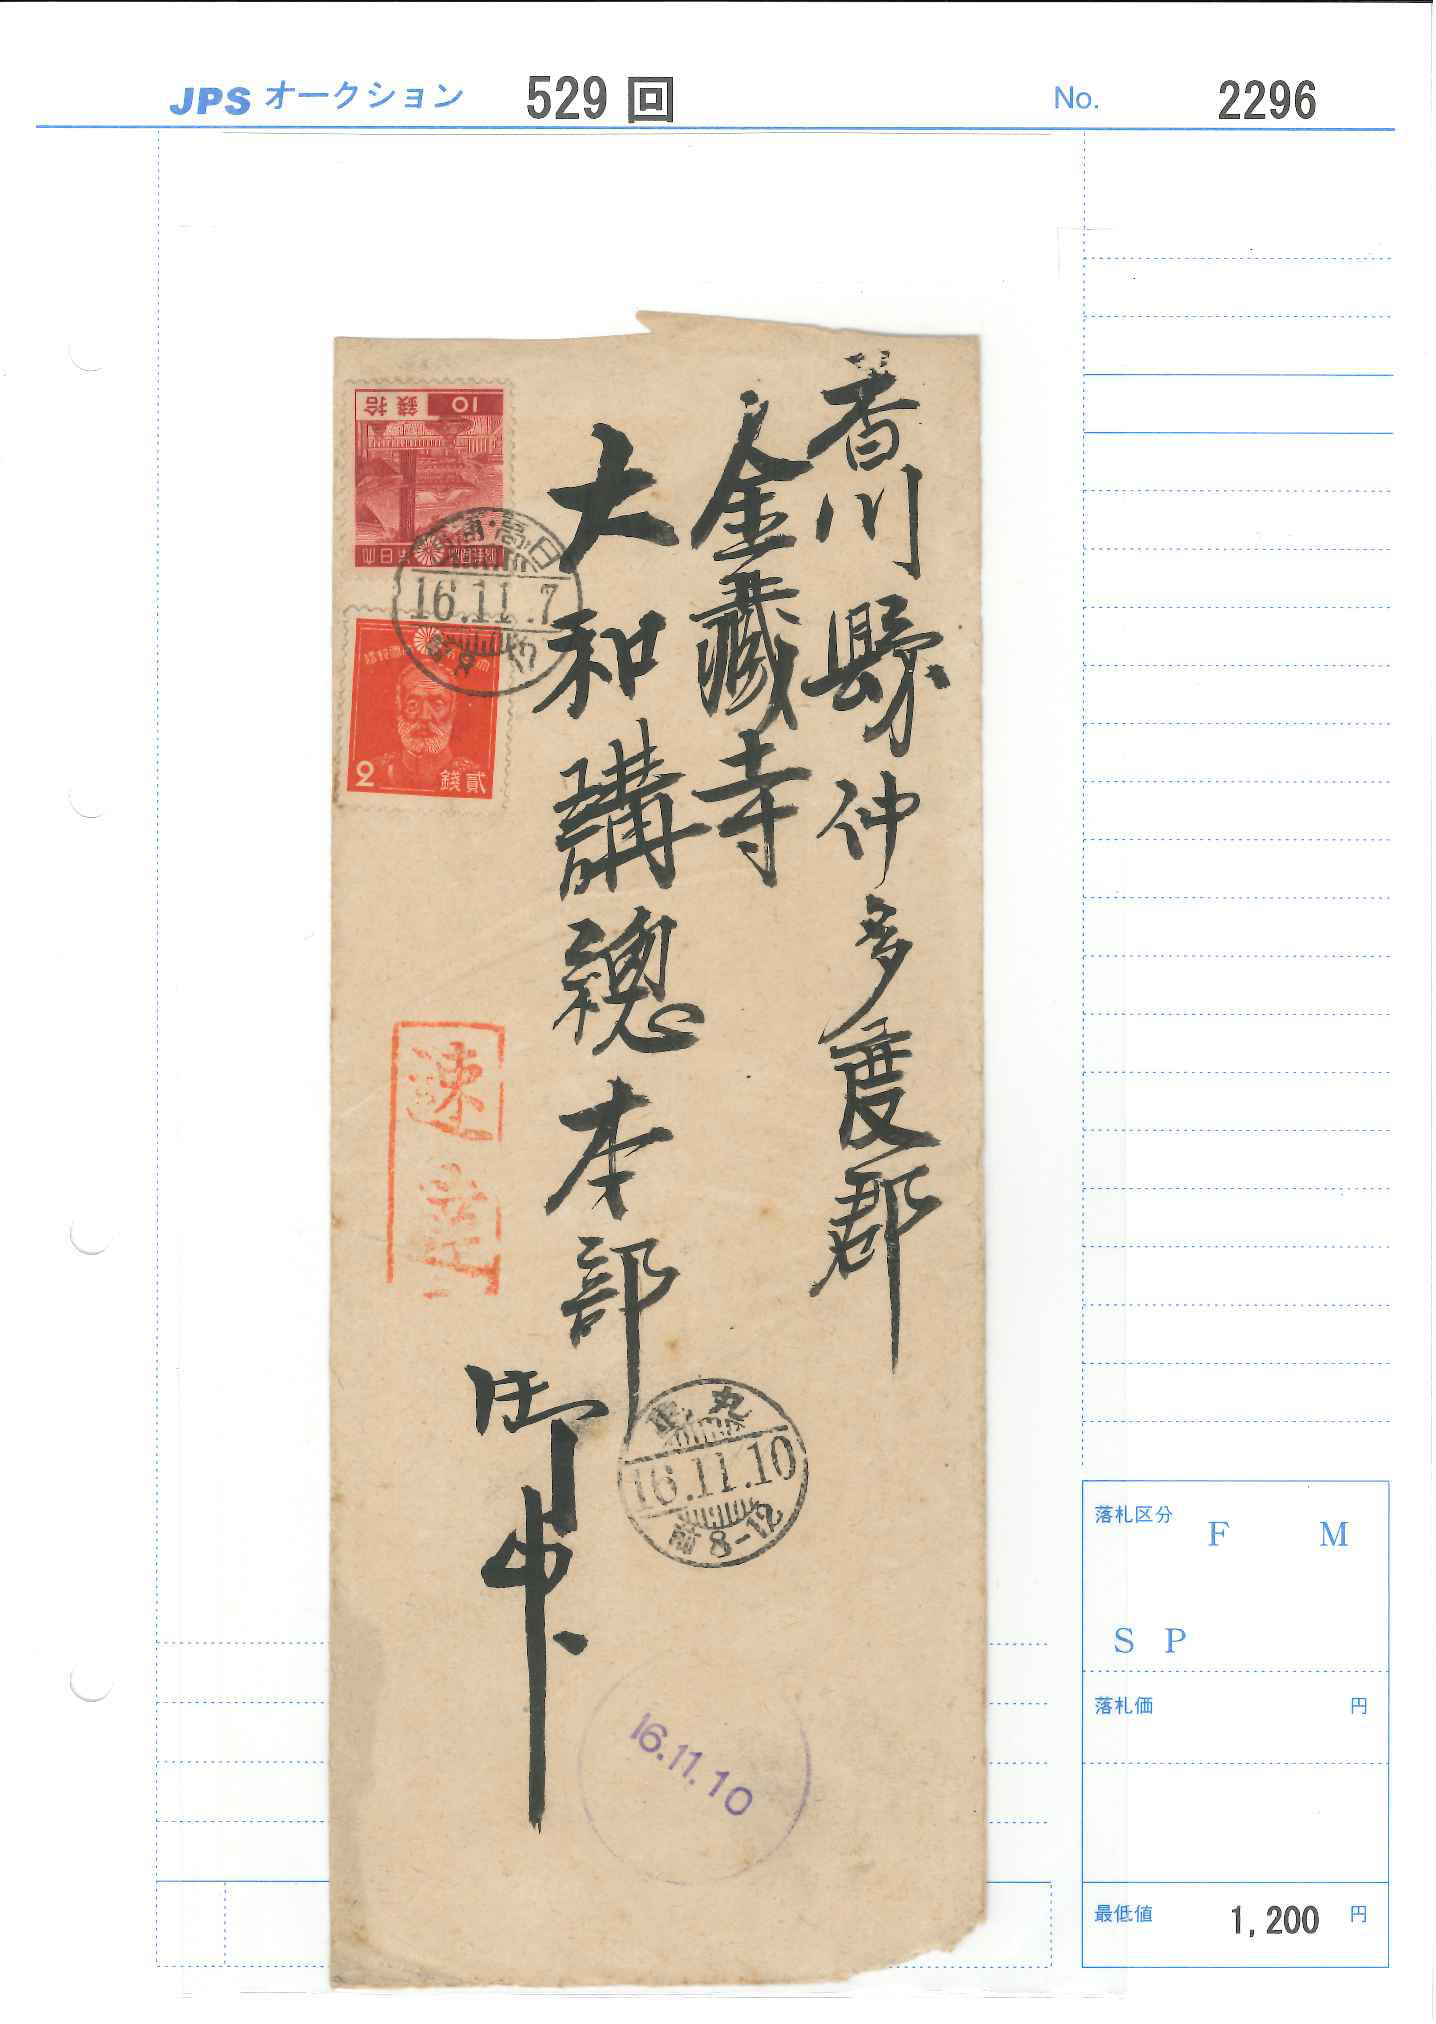 JPS オークション 529 回 No. 2296
香川縣仲多度郡
金藏寺
大和講總本部
御中
10 銭拾
16.11.7
2 銭貳
速達
丸亀
16.11.10
前 8-12
16.11.10
落札区分 F M
S P
落札価 円
最低値 1,200 円